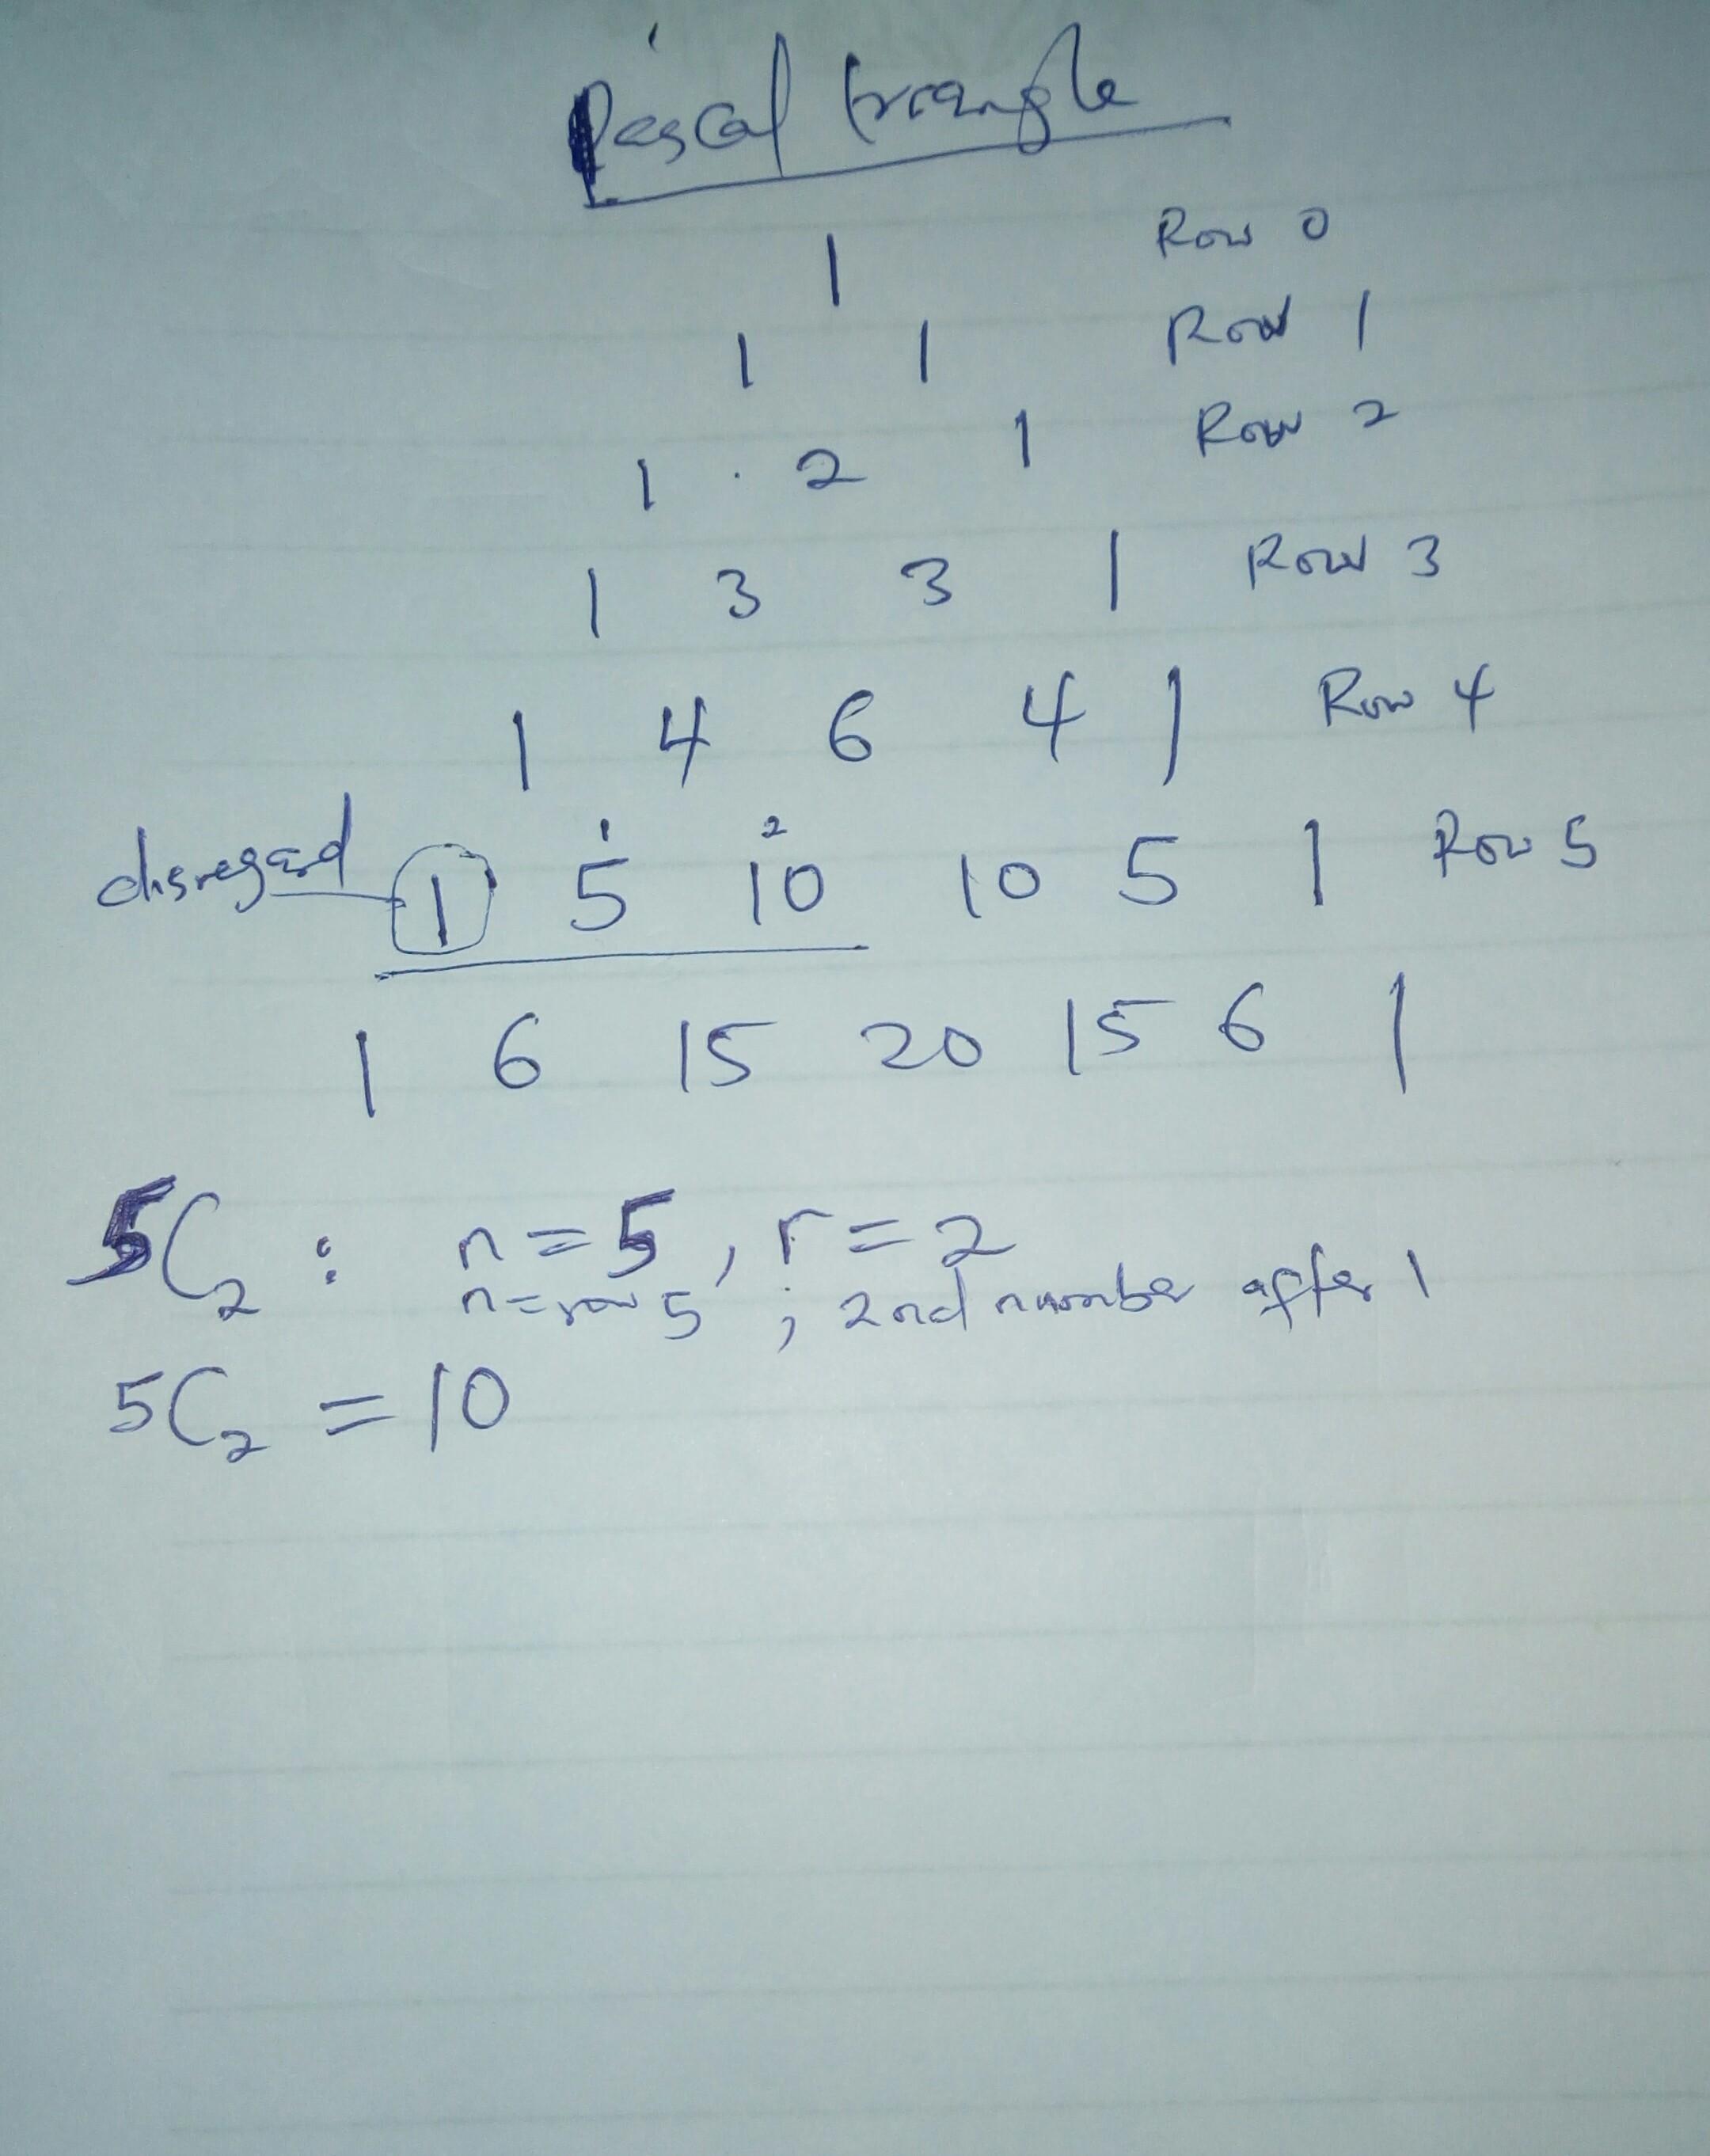 Pascal triangle
1 Row 0
1 1 Row 1
1 . 2 1 Row 2
1 3 3 1 Row 3
1 4 6 4 1 Row 4
1 2
disregard 1 5 10 10 5 1 Row 5
1 6 15 20 15 6 1
5C₂ : n=5, r=2
n=row 5 ; 2nd number after 1
5C₂ = 10